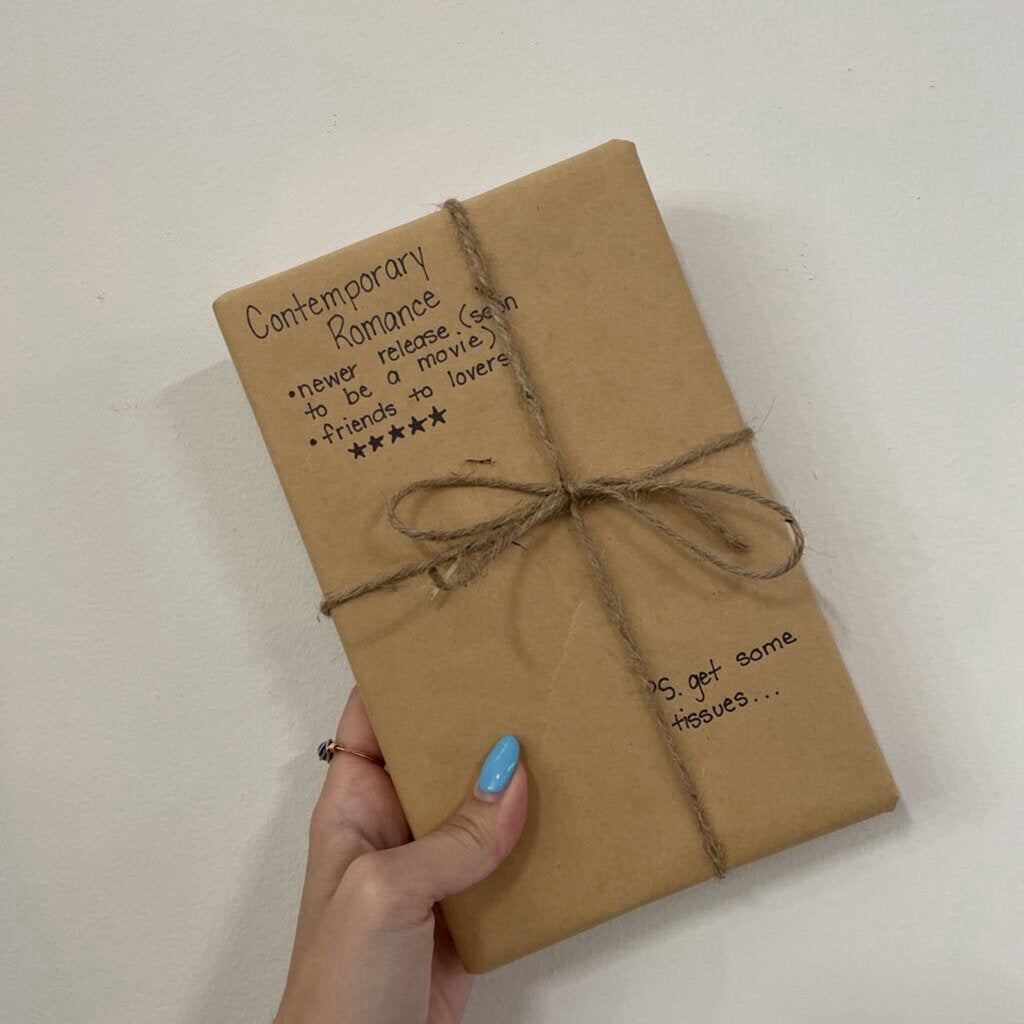 Contemporary
Romance
• newer release (soon
to be a movie)
• friends to lovers
★★★★★
PS. get some
tissues...